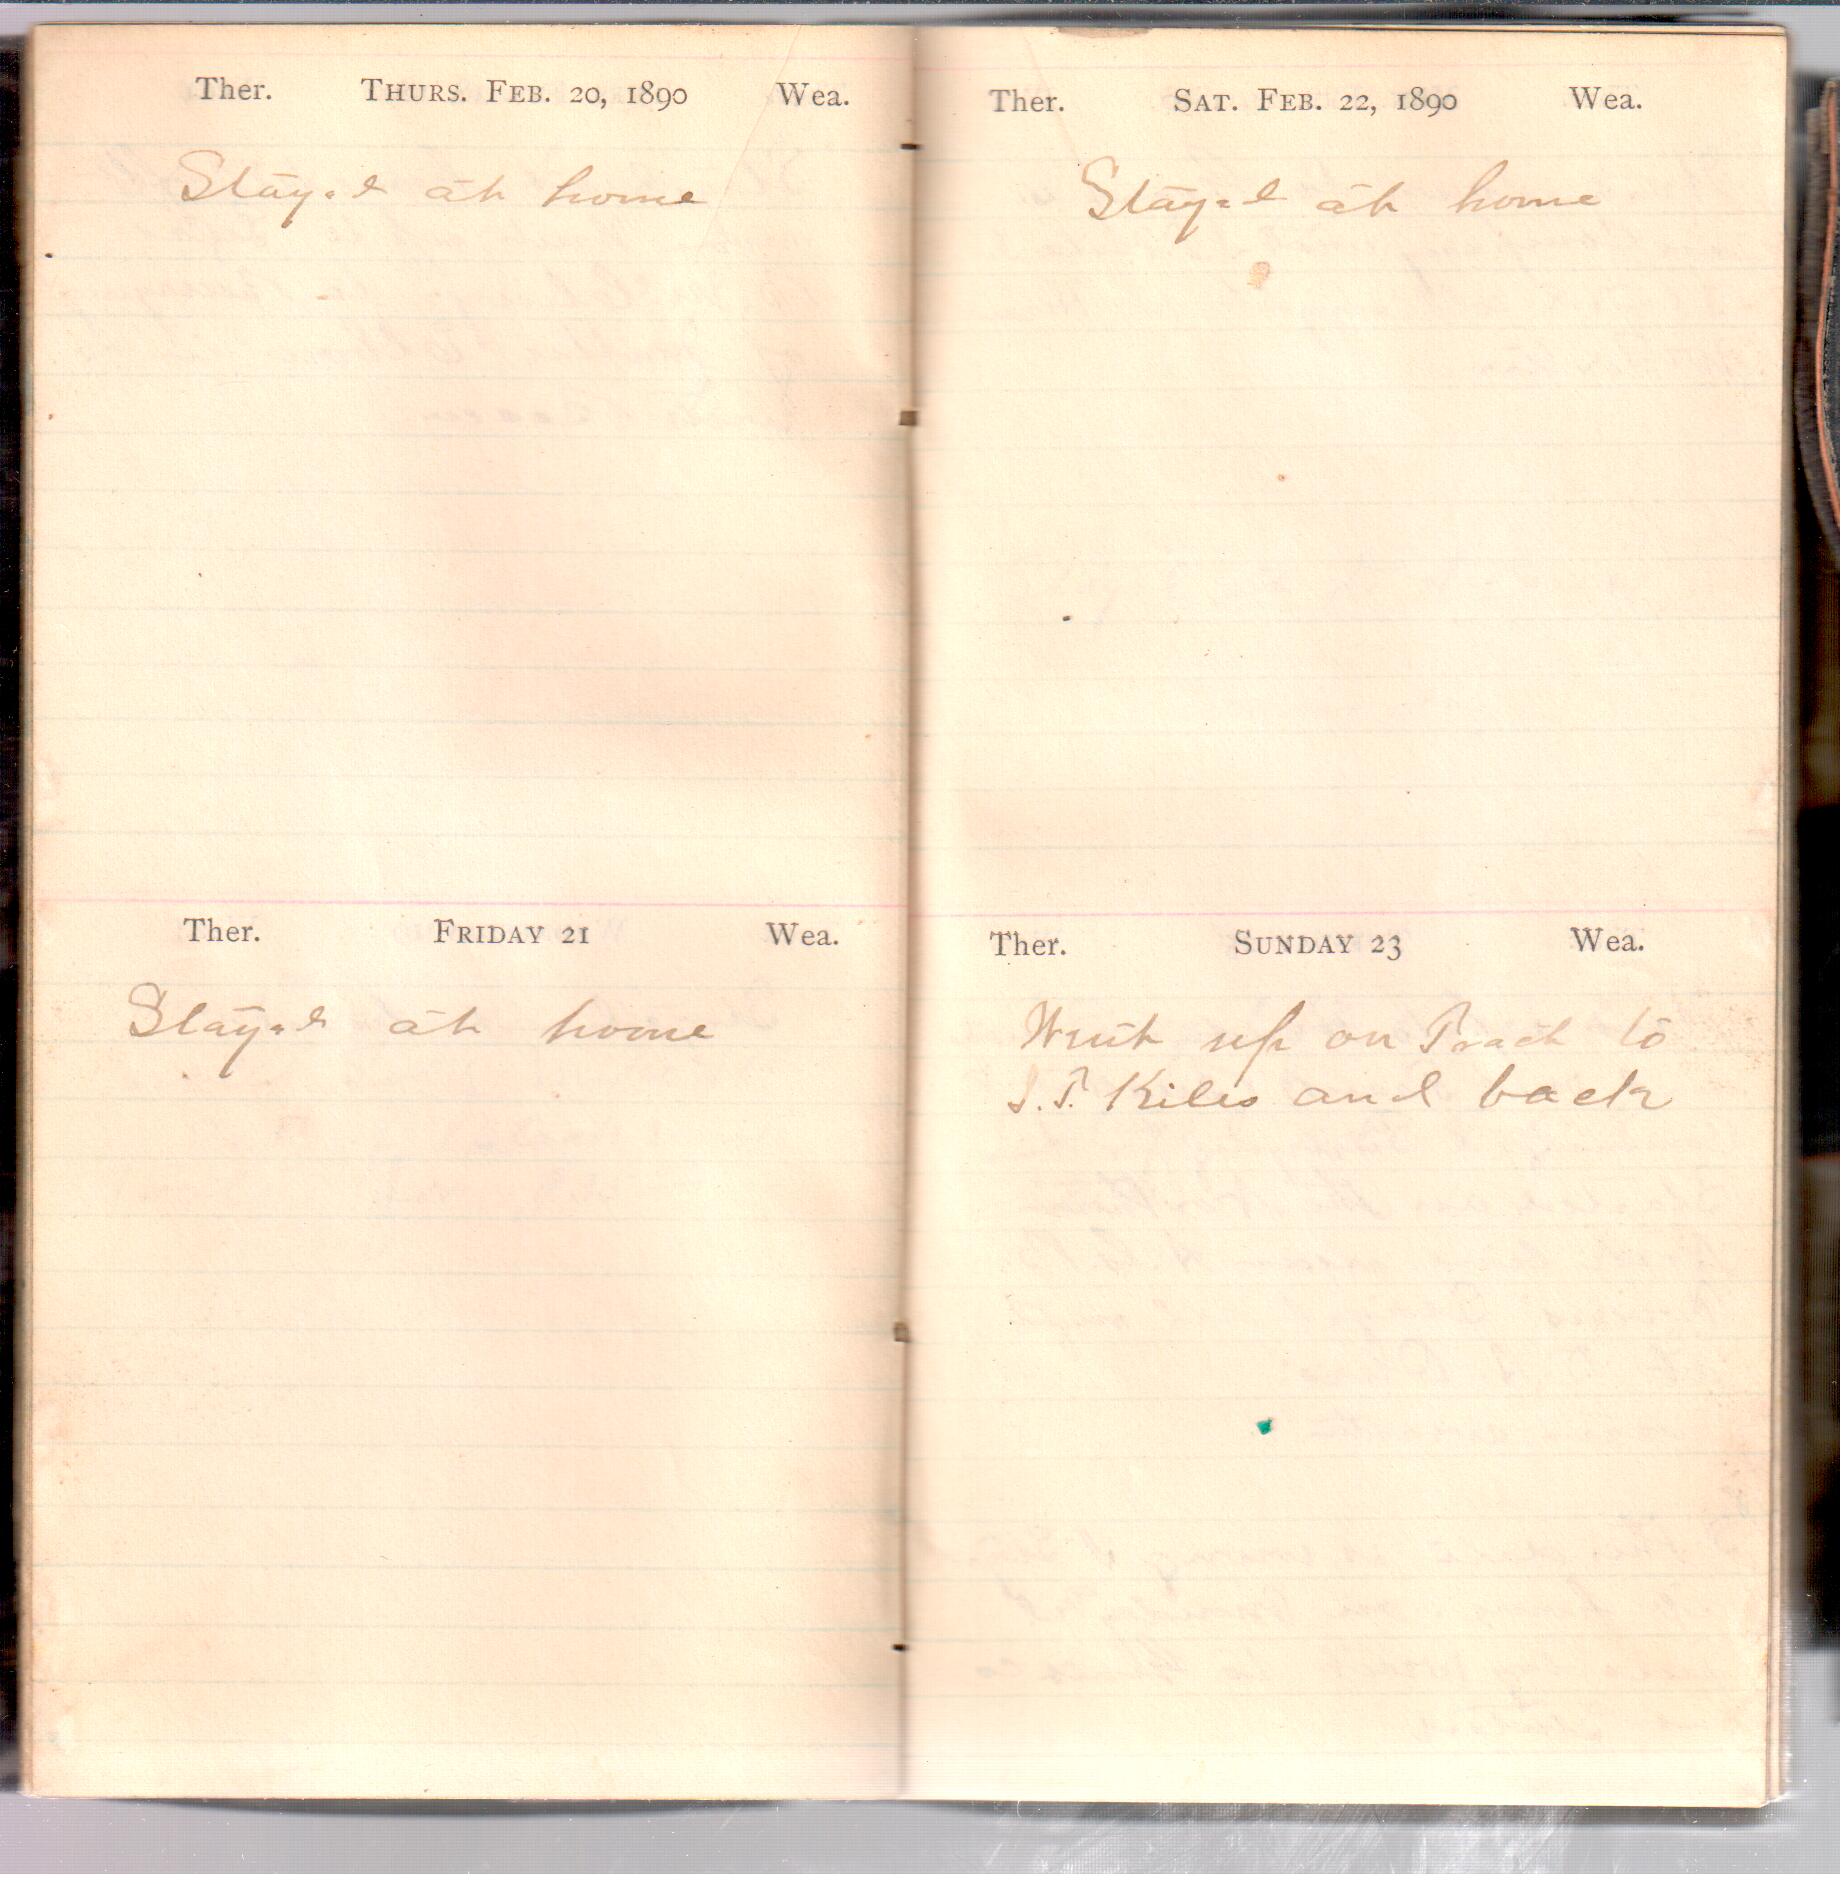 Ther. THURS. FEB. 20, 1890 Wea.
Stayed at home
Ther. FRIDAY 21 Wea.
Stayed at home
Ther. SAT. FEB. 22, 1890 Wea.
Stayed at home
Ther. SUNDAY 23 Wea.
Went up on Track to
Kiles and back